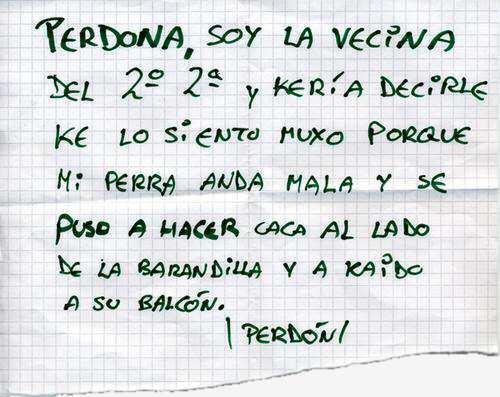 PERDONA, SOY LA VECINA
DEL 2º 2ª Y KERÍA DECIRLE
KE LO SIENTO MUXO PORQUE
MI PERRA ANDA MALA Y SE
PUSO A HACER CACA AL LADO
DE LA BARANDILLA Y A KAIDO
A SU BALCÓN.
¡PERDÓN!